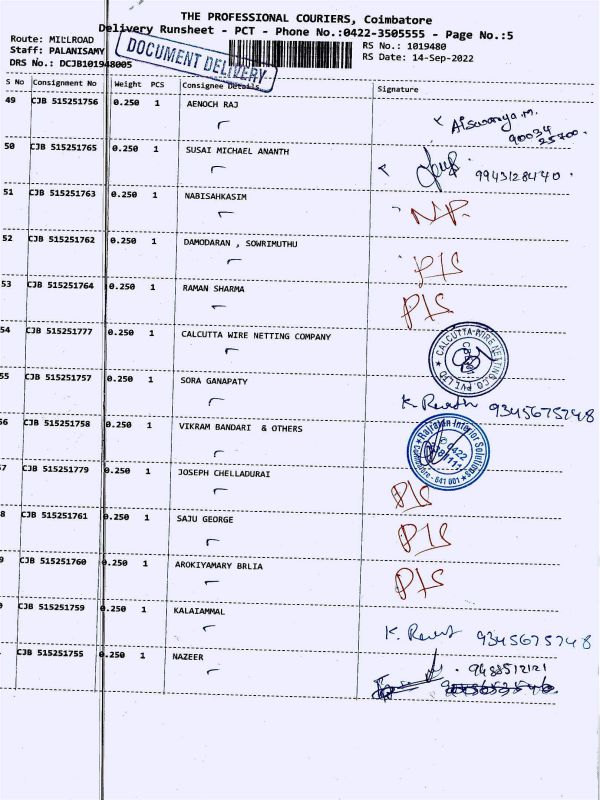 THE PROFESSIONAL COURIERS, Coimbatore
Delivery Runsheet - PCT - Phone No.:0422-3505555 - Page No.:5
Route: MILLROAD
Staff: PALANISAMY
DRS No.: DCJB101948005
DOCUMENT DELIVERY
RS No.: 1019480
RS Date: 14-Sep-2022
S No Consignment No Weight PCS Consignee Details Signature
49 CJB 515251756 0.250 1 AENOCH RAJ Aiswarya.M. 90034 25700
50 CJB 515251765 0.250 1 SUSAI MICHAEL ANANTH 9943128440
51 CJB 515251763 0.250 1 NABISAHKASIM NP.
52 CJB 515251762 0.250 1 DAMODARAN , SOWRIMUTHU P/S
53 CJB 515251764 0.250 1 RAMAN SHARMA P/S
54 CJB 515251777 0.250 1 CALCUTTA WIRE NETTING COMPANY CALCUTTA WIRE NETTING CO PVT LTD
55 CJB 515251757 0.250 1 SORA GANAPATY K. 9345675748
56 CJB 515251758 0.250 1 VIKRAM BANDARI & OTHERS Rajrajan Interior Solutions 0422 Coimbatore - 641 001
57 CJB 515251779 0.250 1 JOSEPH CHELLADURAI P/S
8 CJB 515251761 0.250 1 SAJU GEORGE P/S
9 CJB 515251760 0.250 1 AROKIYAMARY BRLIA P/S
CJB 515251759 0.250 1 KALAIAMMAL K. 9345675748
CJB 515251755 0.250 1 NAZEER 9488512121